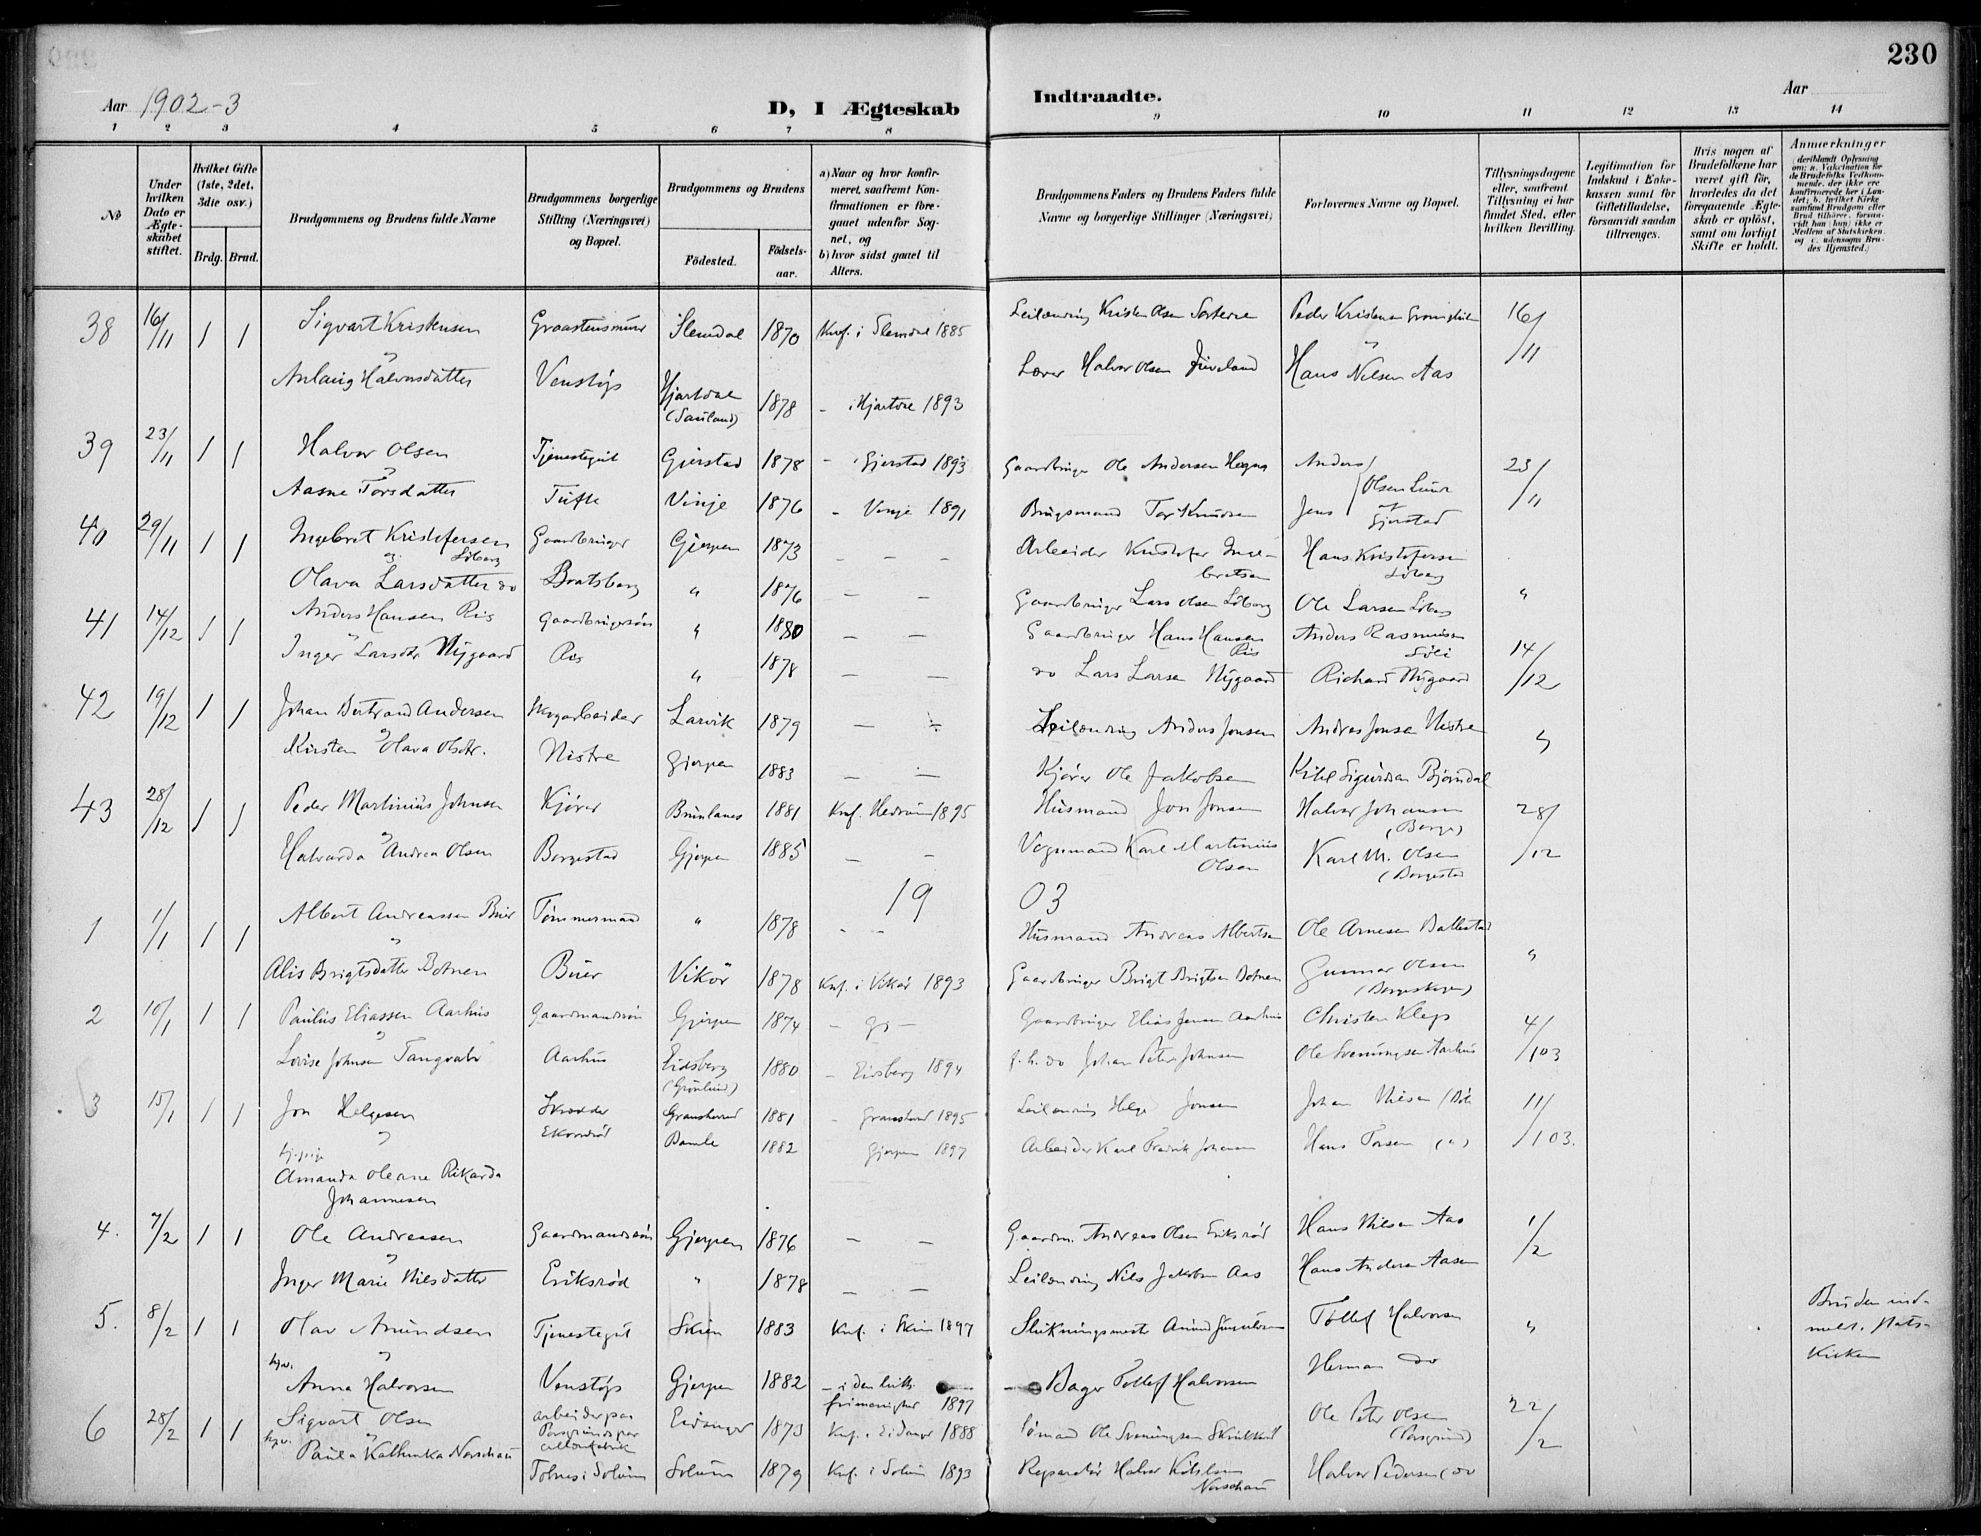 230
Aar 1902-3
D, I Ægteskab Indtraadte.
Aar
1 2 3 4 5 6 7 8 9 10 11 12 13 14
No
Under hvilken Dato er Ægteskabet stiftet.
Hvilket Gifte (1ste, 2det, 3die osv.)
Brdg. Brud.
Brudgommens og Brudens fulde Navne
Brudgommens borgerlige Stilling (Næringsvei) og Bopæl.
Brudgommens og Brudens
Födested. Födselsaar.
a) Naar og hvor konfirmeret, saafremt Konfirmationen er foregaaet udenfor Sognet, og
b) hvor sidst gaaet til Alters.
Brudgommens Faders og Brudens Faders fulde Navne og borgerlige Stillinger (Næringsvei)
Forlovernes Navne og Bopæl.
Tillysningsdagene eller, saafremt Tillysning ei har fundet Sted, efter hvilken Bevilling.
Legitimation for Indskud i Enkekassen samt for Giftetilladelse, forsaavidt saadan tiltrænges.
Hvis nogen af Brudefolkene har været gift för, hvorledes da det foregaaende Ægteskab er oplöst, samt om lovligt Skifte er holdt.
Anmærkninger
38 16/11 1 1 Sigvart Kristensen Graastensmurer Slemdal 1870 Knf. i Slemdal 1885 Leilænding Kristen Olsen Peder Kristensen 16/11
og
Anlaug Halvorsdatter Venstøp Hjartdal (Sauland) 1878 - i Hjartdal 1893 Halvor Olsen Hans Nilsen Aas
39 23/11 1 1 Halvor Olsen Tjenestegut Gjerstad 1878 - i Gjerstad 1893 Gaardbruger Ole Andersen Anders 23/11
og
Aasne Torsdatter Tufte Vinje 1876 - Vinje 1891 Brugsmand Tor Knudsen Jens Olsen Lunde af Gjerstad
40 29/11 1 1 Ingebret Kristofersen Gaardbruger Gjerpen 1873 - - - Arbeider Kristofer Ingebretsen Hans Kristofersen
og
Olava Larsdatter do Bratsberg " 1876 - - Gaardbruger Lars Olsen Ole Larsen "
41 14/12 1 1 Anders Hansen Ris Gaardbrugersøn " 1880 - - Gaardbruger Hans Hansen Ris Anders Rasmussen
og
Inger Larsdtr Nygaard Ris " 1878 - - do Lars Larsen Nygaard Richard Nygaard 14/12
42 19/12 1 1 Johan Bertrand Andersen Skogarbeider Larvik 1879 - - Leilænding Anders Jonsen Andreas Jonsen Nistre "
og
Kirsten Olava Olsdtr. Nistre Gjerpen 1883 - - Kjører Ole Jakobsen Kittel Sigurdsen Bjørndal
43 28/12 1 1 Peder Martinius Johnsen Kjører Brunlanes 1881 Knf. Hedrum 1895 Husmand Jon Jonsen Halvor Johansen (Borge) 28/12
og
Halvarda Andrea Olsen Borgestad Gjerpen 1885 - - Vognmand Karl Martinius Olsen Karl M. Olsen (Borgestad
1903
1 1/1 1 1 Albert Andreassen Buer Tømmermand " 1878 - - Husmand Andreas Albertsen Ole Arnesen Ballestad
og
Alis Brigtsdatter Botnen Buer Vikör 1878 Knf. i Vikør 1893 Gaardbruger Brigt Brigtsen Botnen Gunnar Olsen "
2 10/1 1 1 Paulus Eliassen Aarhus Gaardmandssøn Gjerpen 1874 - Gj - Gaardbruger Elias Jensen Aarhus Christen Klep 4/1 03
og
Lovise Johnsen Tangvald Aarhus Eidsberg 1880 - Eidsberg 1894 do Johan Peter Johnsen Ole Svenungsen Aarhus
3 15/1 1 1 Jon Helgesen Skrædder Gransherred 1881 Gransherred 1895 Leilænding Helge Jonsen Johan Nilsen 11/1 03.
og
Amanda Oleane Rikarda Johannesen Ekornrød Bamle 1882 Gjerpen 1897 Arbeider Karl Fredrik Johansen Hans Torsen (")
4. 7/2 1 1 Ole Andreasen Gaardmandssøn Gjerpen 1876 - - Gaardm. Andreas Olsen Eriksrød Hans Nilsen Aas 1/2
og
Inger Marie Nilsdatter Eriksrød " 1878 - - Leilænding Nils Jakobsen Aas Hans Andersen Aasen
5. 8/2 1 1 Olav Amundsen Tjenestegut Skien 1883 Knf. i Skien 1897 Tollef Halvorsen " Bruden indmeldt. Statskirken
og
Anna Halvorsen Venstøp Gjerpen 1882 - i den luth. frimenighed 1897 Bager Tollef Halvorsen Herman do
6 28/2 1 1 Sigvart Olsen arbeider paa Porsgrunds Eidanger 1873 Knf. i Eidanger 1888 Sømand Ole Svenningsen Ole Peter Olsen (Porsgrund) 22/2
og
Paula Kathinka Norschau Tolnes i Solum Solum 1879 Knf. i Solum 1893 Reparatør Halvor Kittelsen Norschau Halvor Pedersen (do